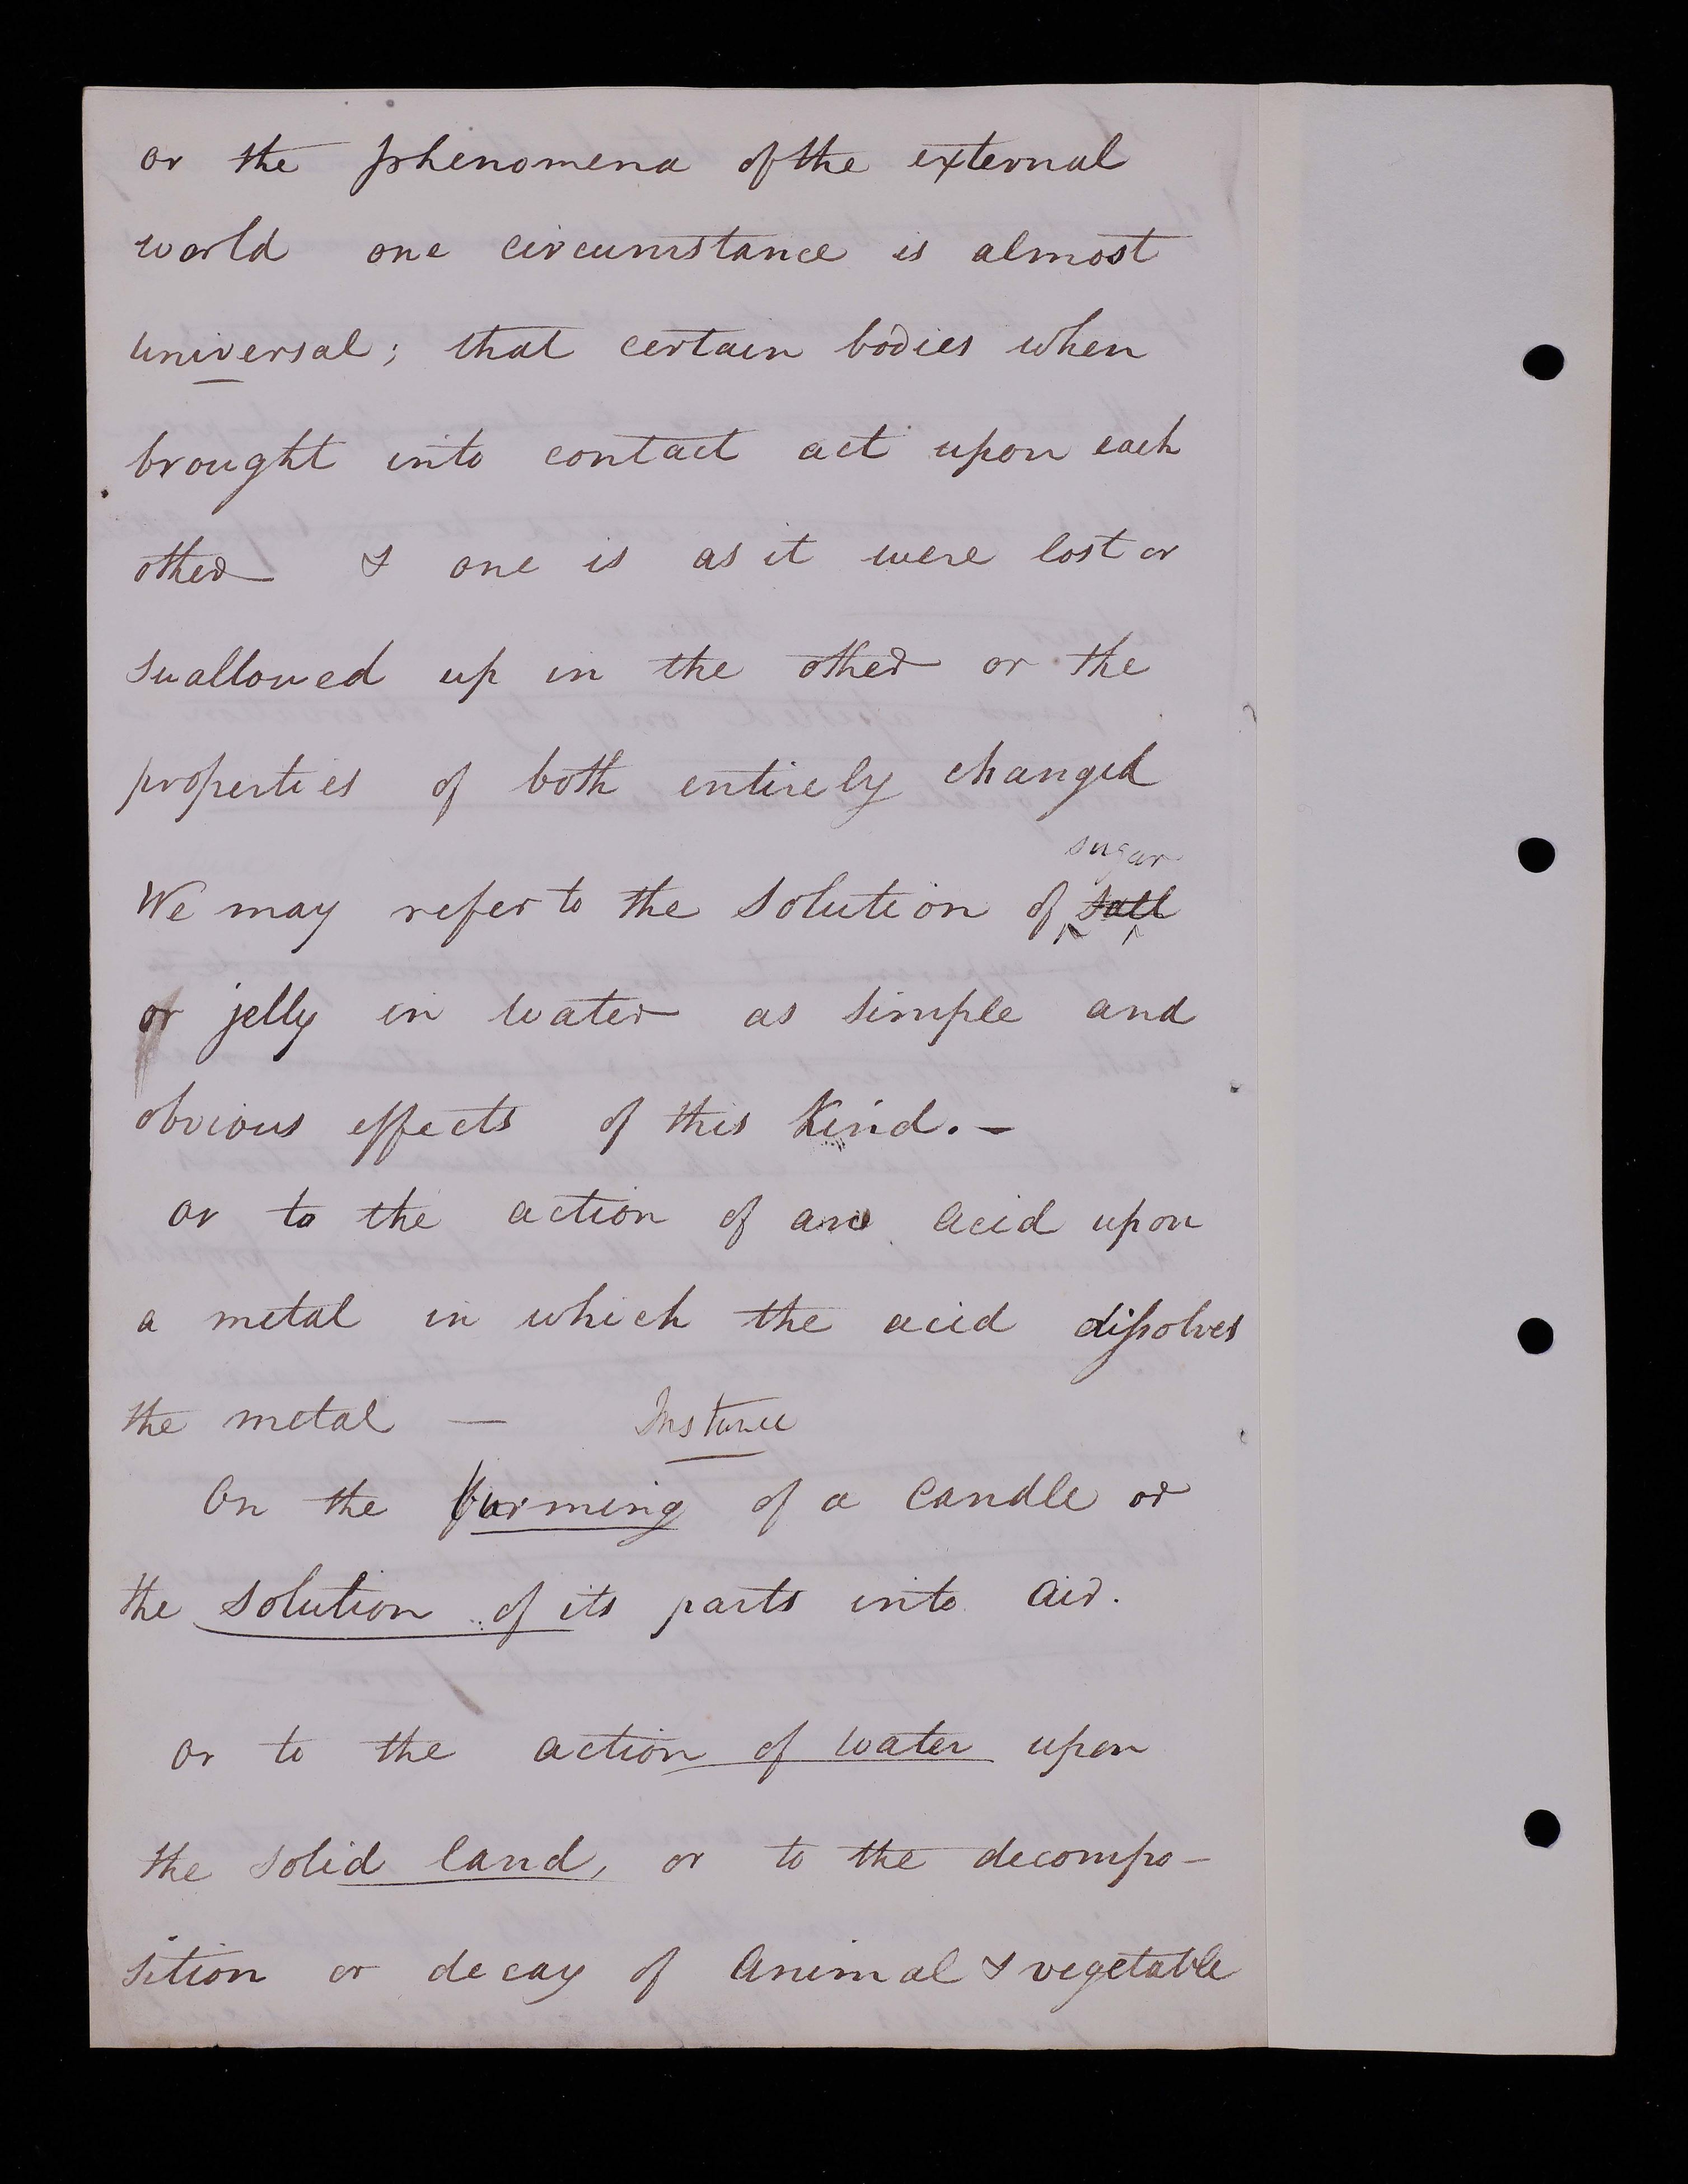 or the phenomena of the external
world one circumstance is almost
universal; that certain bodies when
brought into contact act upon each
other & one is as it were lost or
swallowed up in the other or the
properties of both entirely changed
sugar
We may refer to the solution of salt
or jelly in water as simple and
obvious effects of this Kind. –
or to the action of an acid upon
a metal in which the acid dissolves
the metal — Instance
On the burning of a Candle or
the solution of its parts into air.
or to the action of water upon
the solid land, or to the decompo-
sition or decay of Animal & vegetable